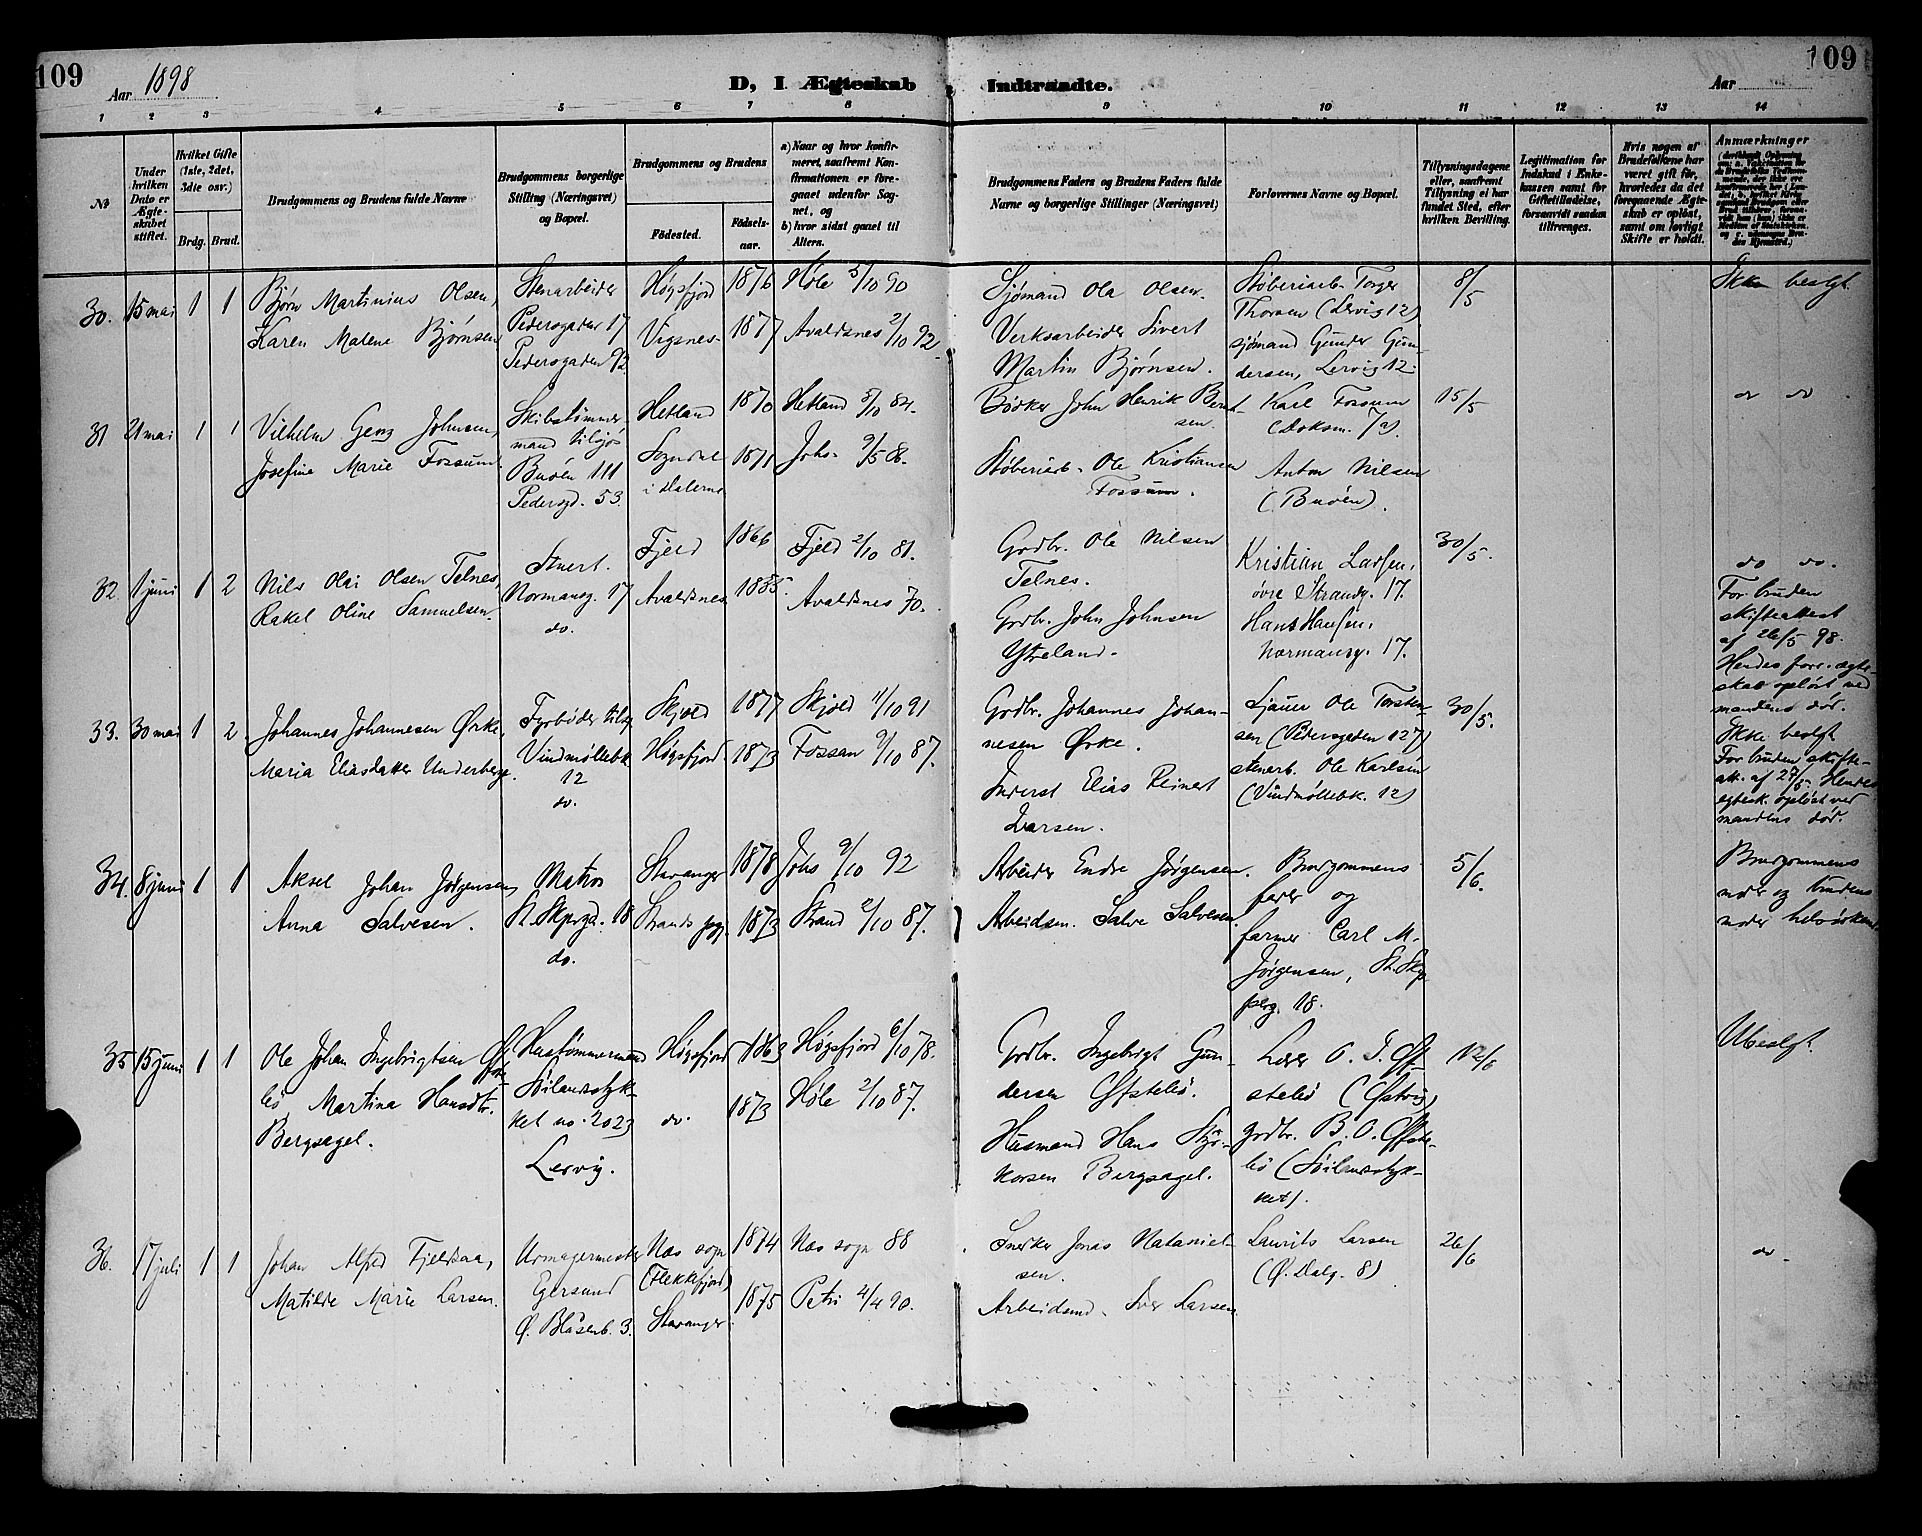 109
Aar 1898
D, I Ægteskab Indtraadte.
Aar
109
1 2 3 4 5 6 7 8 9 10 11 12 13 14
No
Under hvilken Dato er Ægteskabet stiftet.
Hvilket Gifte (1ste, 2det, 3die osv.)
Brdg. Brud.
Brudgommens og Brudens fulde Navne
Brudgommens borgerlige Stilling (Næringsvei) og Bopæl.
Brudgommens og Brudens
Fødested. Fødselsaar.
a) Naar og hvor konfirmeret, saafremt Konfirmationen er foregaaet udenfor Sognet, og
b) hvor sidst gaaet til Alters.
Brudgommens Faders og Brudens Faders fulde Navne og borgerlige Stillinger (Næringsvei)
Forlovernes Navne og Bopæl.
Tillysningsdagene eller, saafremt Tillysning ei har fundet Sted, efter hvilken Bevilling.
Legitimation for Indskud i Enkekassen samt for Giftetilladelse, forsaavidt saadan tiltrænges.
Hvis nogen af Brudefolkene har været gift før, hvorledes da det foregaaende Ægteskab er opløst, samt om lovligt Skifte er holdt.
Anmærkninger
30. 15 mai 1 1
Bjørn Martinius Olsen,
Karen Malene Bjørnsen
Stenarbeider
Pedersgaden 17
Pedersgaden 92
Høgsfjord 1876 Høle 5/10 90
Vigsnes 1877 Avaldsnes 2/10 92
Sjømand Ola Olsen.
Verksarbeider Sivert
Martin Bjørnsen.
Støberiarb. Torger
Thorsen (Lervig 12)
sjømand Gunder Gundersen, Lervig 12.
8/5
Ikke beslgt.
31 21 mai 1 1
Vilhelm Georg Johnsen,
Josefine Marie Fossum.
Skibstømmermand tilsjøs
Buøen 111
Pedersgd. 53.
Hetland 1870 Hetland 5/10 84.
Sogndal i Dalerne 1871 Johs. 9/5 86.
Bødker John Henrik Berntsen.
Støberiarb. Ole Kristiansen
Fossum.
Karl Fossum
(Doksm. 7a).
Anton Nilsen
(Buøen).
15/5
do do.
32. 1 juni 1 2
Nils Olai Olsen Telnes,
Rakel Oline Samuelsen.
Stuert.
Normansg. 17
do.
Fjeld 1866 Fjeld 2/10 81.
Avaldsnes 1855. Avaldsnes 70.
Grdbr. Ole Nilsen
Telnes.
Grdbr. John Johnsen
Ytreland.
Kristian Larsen,
øvre Strandg. 17.
Hans Hansen,
Normansg. 17.
30/5.
do do.
For bruden
skifteattest
af 26/5 98.
Hendes forr. ægteskab opløst ved
mandens død.
33. 30 mai 1 2
Johannes Johannesen Ørke,
Maria Eliasdatter Underberge.
Fyrbøder tils.
Vindmøllebk.
12
do.
Skjold 1877 Skjold 11/10 91
Høgsfjord 1873 Fossan 9/10 87.
Grdbr. Johannes Johannesen Ørke.
Inderst Elias Reinert
Larsen.
Sjauer Ole Torstensen (Pedersgaden 127)
stenarb. Ole Karlsen
(Vindmøllebk. 12)
30/5.
Ikke beslgt
For bruden skifteatt. af 27/5. Hendes
egtesk. opløst ved
mandens død.
34. 8 juni 1 1
Aksel Johan Jørgensen,
Anna Salvesen.
Matros
St. Skprgd. 18
do.
Stavanger 1878 Johs 9/10 92
Strands pgj 1873 Strand 2/10 87.
Arbeider Endre Jørgensen.
Arbeidsm. Salve Salvesen
Brudgommens
fader og
farmer Carl M.
Jørgensen, St. Skipperg. 18.
5/6.
Brudgommens
moder og brudens
moder helsøskend.
35 15 juni 1 1
Ole Johan Ingebrigtsen Offstebø, Martina Hansdtr.
Bergsagel.
Hustømmermand
Søilnesstykket no. 2023
Lervig.
Høgsfjord 1863 Høgsfjord 6/10 78.
do. 1873 Høle 2/10 87.
Grdbr. Ingebrigt Gundersen Offstebø.
Husmand Hans Styrkorsen Bergsagel.
Lærer O. I. Offstebø (Østvig)
grdbr. B. O. Offstebø (Søilnesstykket).
12/6
Ubeslgt.
36. 17 juli 1 1
Johan Alfred Fjeldsaa,
Matilde Marie Larsen.
Urmagermester
Egersund
Ø. Blåsenb. 3.
Næs sogn (Flekkefjord) 1874 Næs sogn 88
Stavanger 1875 Petri 2/4 90.
Snerker Jonas Natanielsen.
Arbeidsmd. Iver Larsen.
Laurits Larsen
(Ø. Dalg. 8)
26/6
do.